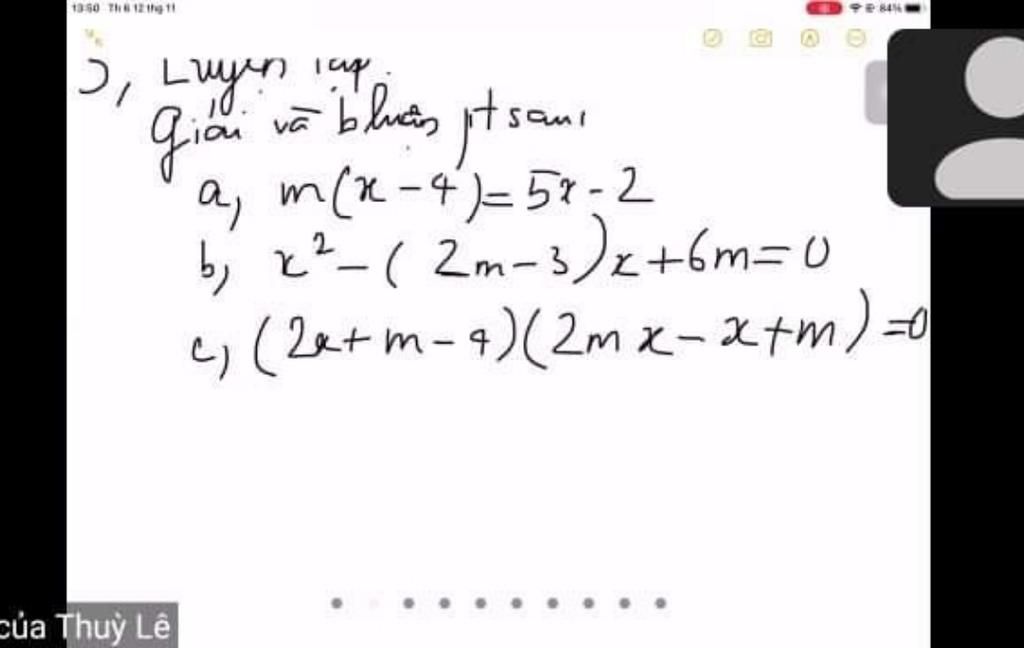 13:50 Th 6 12 thg 11
84%
Luyện tập.
Giải và b luận pt sau:
a, m(x - 4) = 5x - 2
b, x² - ( 2m - 3)x + 6m = 0
c, (2x + m - 4)(2m x - x + m) = 0
của Thuỳ Lê